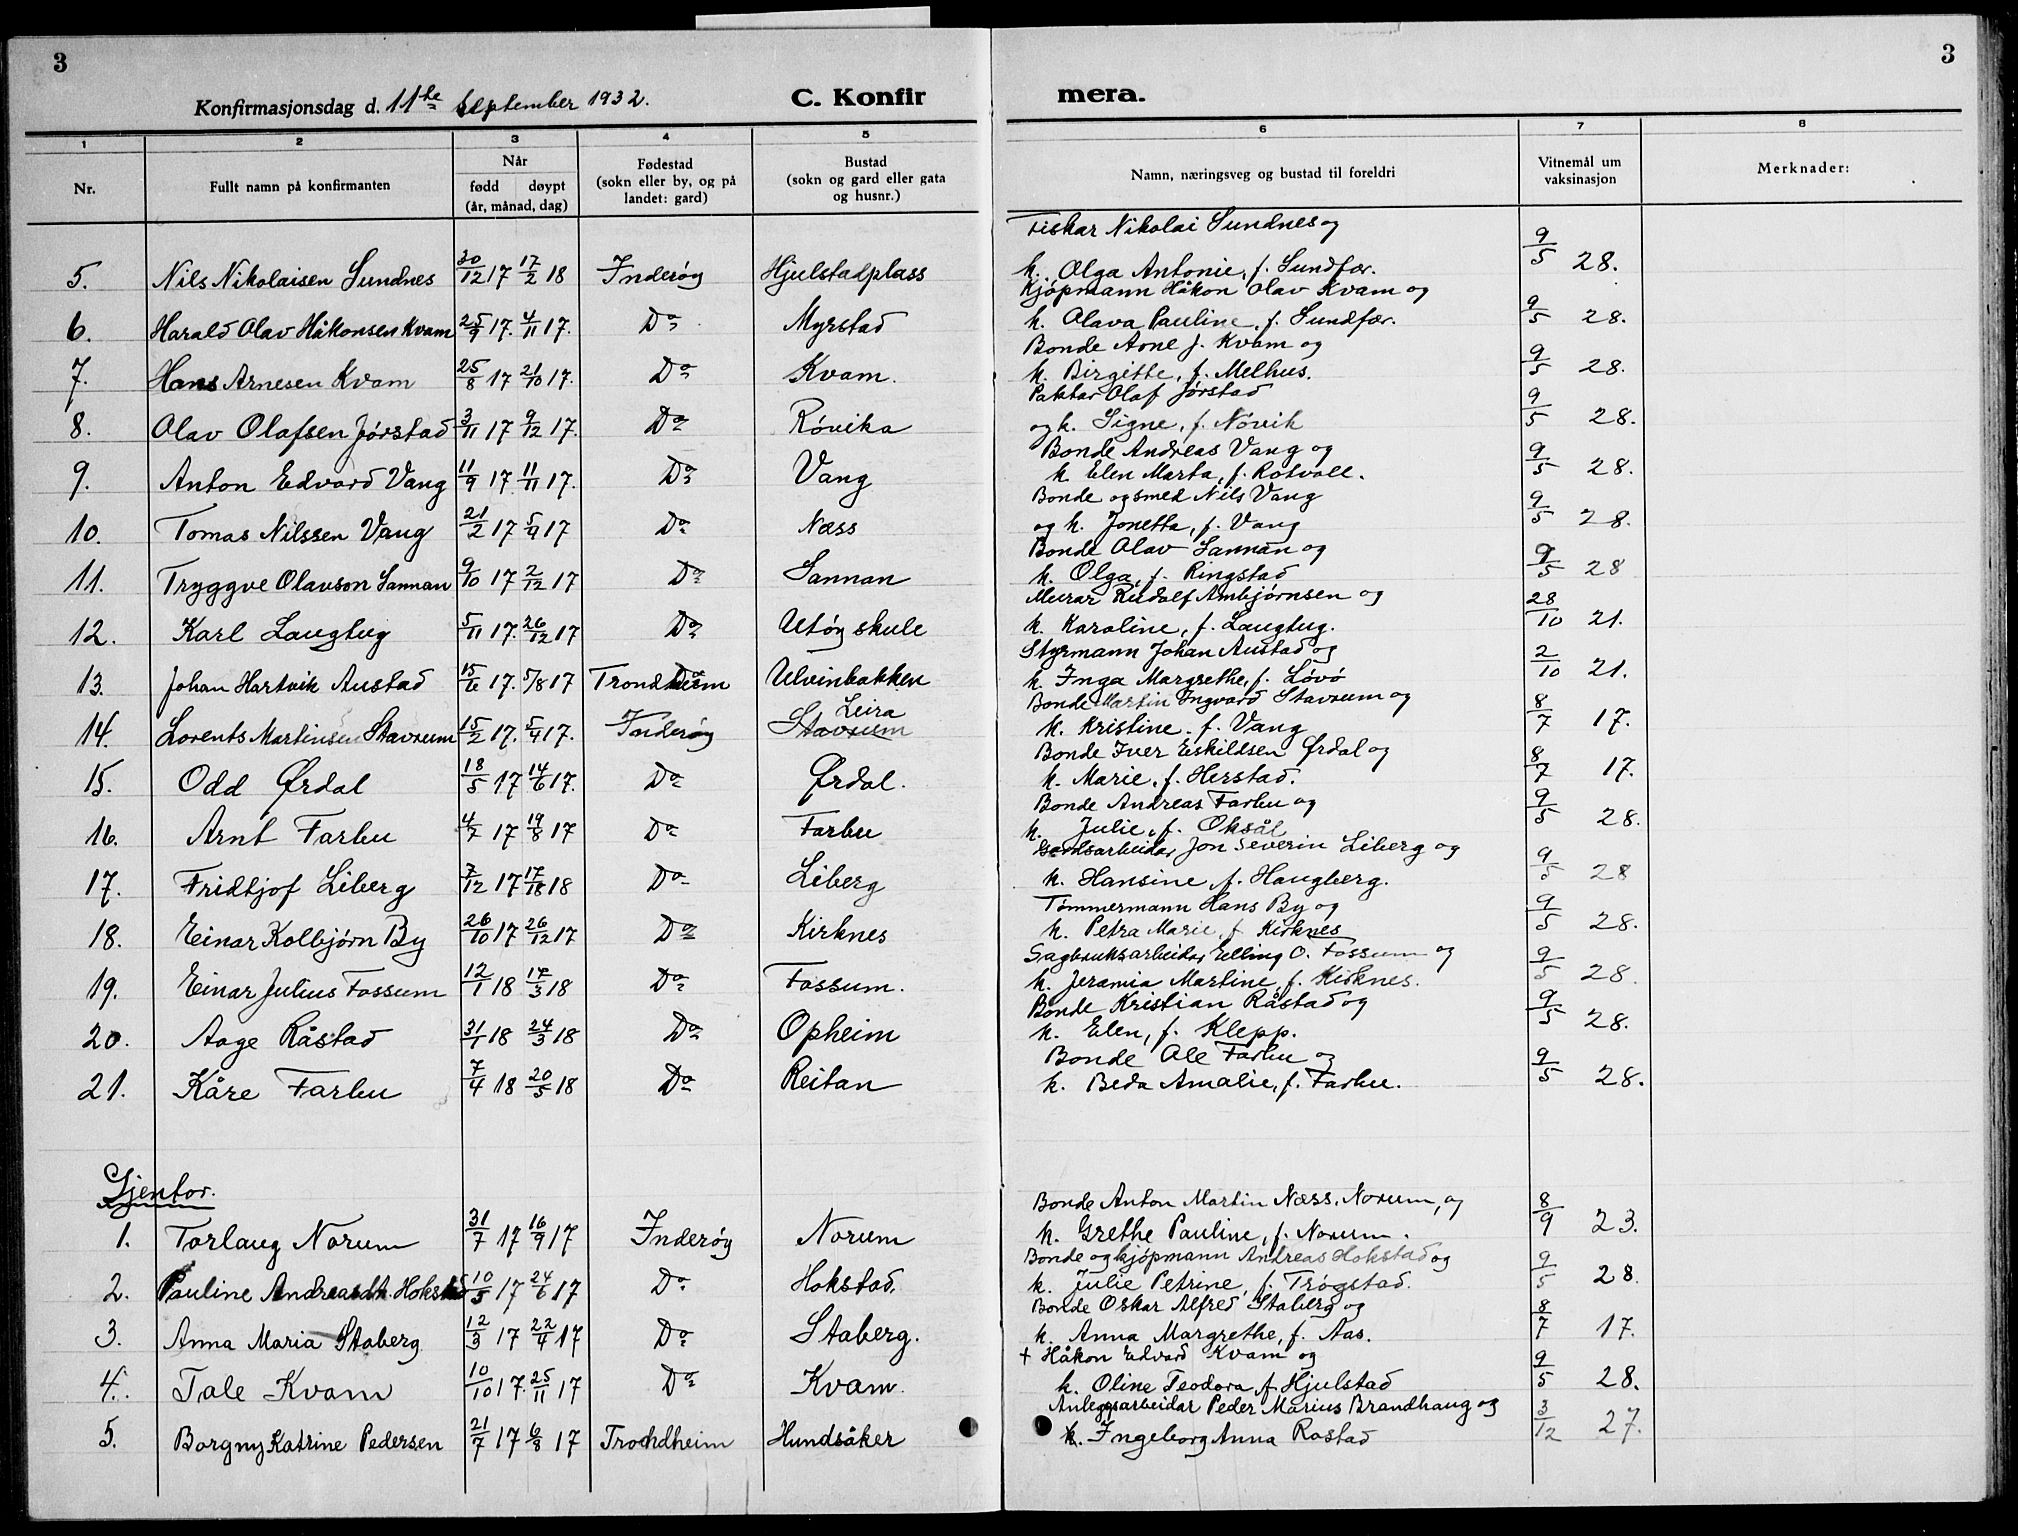 3
3
Konfirmasjonsdag d. 11te September 1932.
C. Konfirmera.
1 2 3 4 5 6 7 8
Nr.
Fullt namn på konfirmanten
Når
fødd døypt
(år, månad, dag)
Fødestad
(sokn eller by, og på
landet: gard)
Bustad
(sokn og gard eller gata
og husnr.)
Namn, næringsveg og bustad til foreldri
Vitnemål um
vaksinasjon
Merknader:
Fiskar Nikolai Sundnes og
5. Nils Nikolaisen Sundnes 30/12 17 17/2 18 Inderøy Hjulstadplass k. Olga Antonie, f. Sundfær. 9/5 28.
Kjøpmann Håkon Olav Kvam og
6. Harald Olav Håkonsen Kvam 25/9 17. 4/11 17. Do Myrstad k. Olava Pauline, f. Sundfær. 9/5 28.
Bonde Arne J. Kvam og
7. Hans Arnesen Kvam 25/8 17 21/10 17. Do Kvam. k. Birgitte, f. Melhus. 9/5 28.
Paktar Olaf Jørstad
8. Olav Olafsen Jørstad 3/11 17 9/12 17. Do Røvika og k. Signe, f. Nøvik 9/5 28.
Bonde Andreas Vang og
9. Anton Edvard Vang 11/9 17 11/11 17. Do Vang k. Elen Marta, f. Rotvoll. 9/5 28.
Bonde og smed Nils Vang
10. Tomas Nilssen Vang 21/2 17 5/4 17 Do Næss og k. Jonetta, f. Vang 9/5 28.
Bonde Olav Sannan og
11. Tryggve Olavson Sannan 9/10 17 2/12 17 Do Sannan k. Olga, f. Ringstad 9/5 28
Murar Rudolf Ambjørnsen og
12. Karl Langtug 5/11 17. 26/12 17 Do Utøy skule k. Karoline, f. Langtug. 28/10 21.
Styrmann Johan Austad og
13. Johan Hartvik Austad 15/6 17. 5/8 17 Trondheim Ulvinbakken k. Inga Margrethe, f. Løvø 2/10 21.
Bonde Martin Ingvard Stavrum og
Leira
14. Lorents Martinsen Stavrum 15/2 17. 5/4 17. Inderøy Stavrum k. Kristine. f. Vang 8/7 17.
Bonde Iver Eskildsen Ørdal og
15. Odd Ørdal 18/5 17 14/6 17. Do Ørdal. k. Marie, f. Herstad. 8/7 17.
Bonde Andreas Farbu og
16. Arnt Farbu 4/7 17 19/8 17 Do Farbu k. Julie, f. Oksål 9/5 28.
Gardsarbeidar Jon Severin Liberg og
17. Fridtjof Liberg 7/12 17 17/18 18 Do Liberg k. Hansine, f. Haugberg. 9/5 28
Tømmermann Hans By og
18. Einar Kolbjørn By 26/10 17 26/12 17 Do Kirknes k. Petra Marie, f. Kirknes 9/5 28.
Sagbruksarbeidar Elling O. Fossum og
19. Einar Julius Fossum 12/1 18 17/3 18 Do Fossum. k. Jeramia Martine, f. Kirknes. 9/5 28.
Bonde Kristian Råstad og
20. Aage Råstad 31/1 18 24/3 18 Do Opheim k. Elen, f. Klepp. 9/5 28.
Bonde Ole Farbu og
21. Kåre Farbu 7/4 18 20/5 18 Do Reitan k. Beda Amalie, f. Farbu. 9/5 28.
Gjentor.
Bonde Anton Martin Næss, Norum, og
1. Torlaug Norum 31/7 17 16/9 17 Inderøy Norum k. Grethe Pauline, f. Norum. 8/9 23.
Bonde og kjøpmann Andreas Hokstad og
2. Pauline Andreasdt. Hokstad 10/5 17 24/6 17 Do Hokstad. k. Julie Petrine, f. Trøgstad. 9/5 28.
Bonde Oskar Alfred Staberg og
3. Anna Maria Staberg 12/3 17 22/4 17 Do Staberg. k. Anna Margrethe, f. Aas. 8/7 17.
+ Håkon Edvard Kvam og
4. Tale Kvam 10/10 17. 25/11 17 Do Kvam. k. Oline Teodora, f. Hjulstad 9/5 28.
Anleggsarbeidar Peder Marius Brandhaug og
5. Borgny Katrine Pedersen 21/7 17 6/8 17 Trondheim Hundsåker k. Ingeborg Anna Rostad 3/12 27.